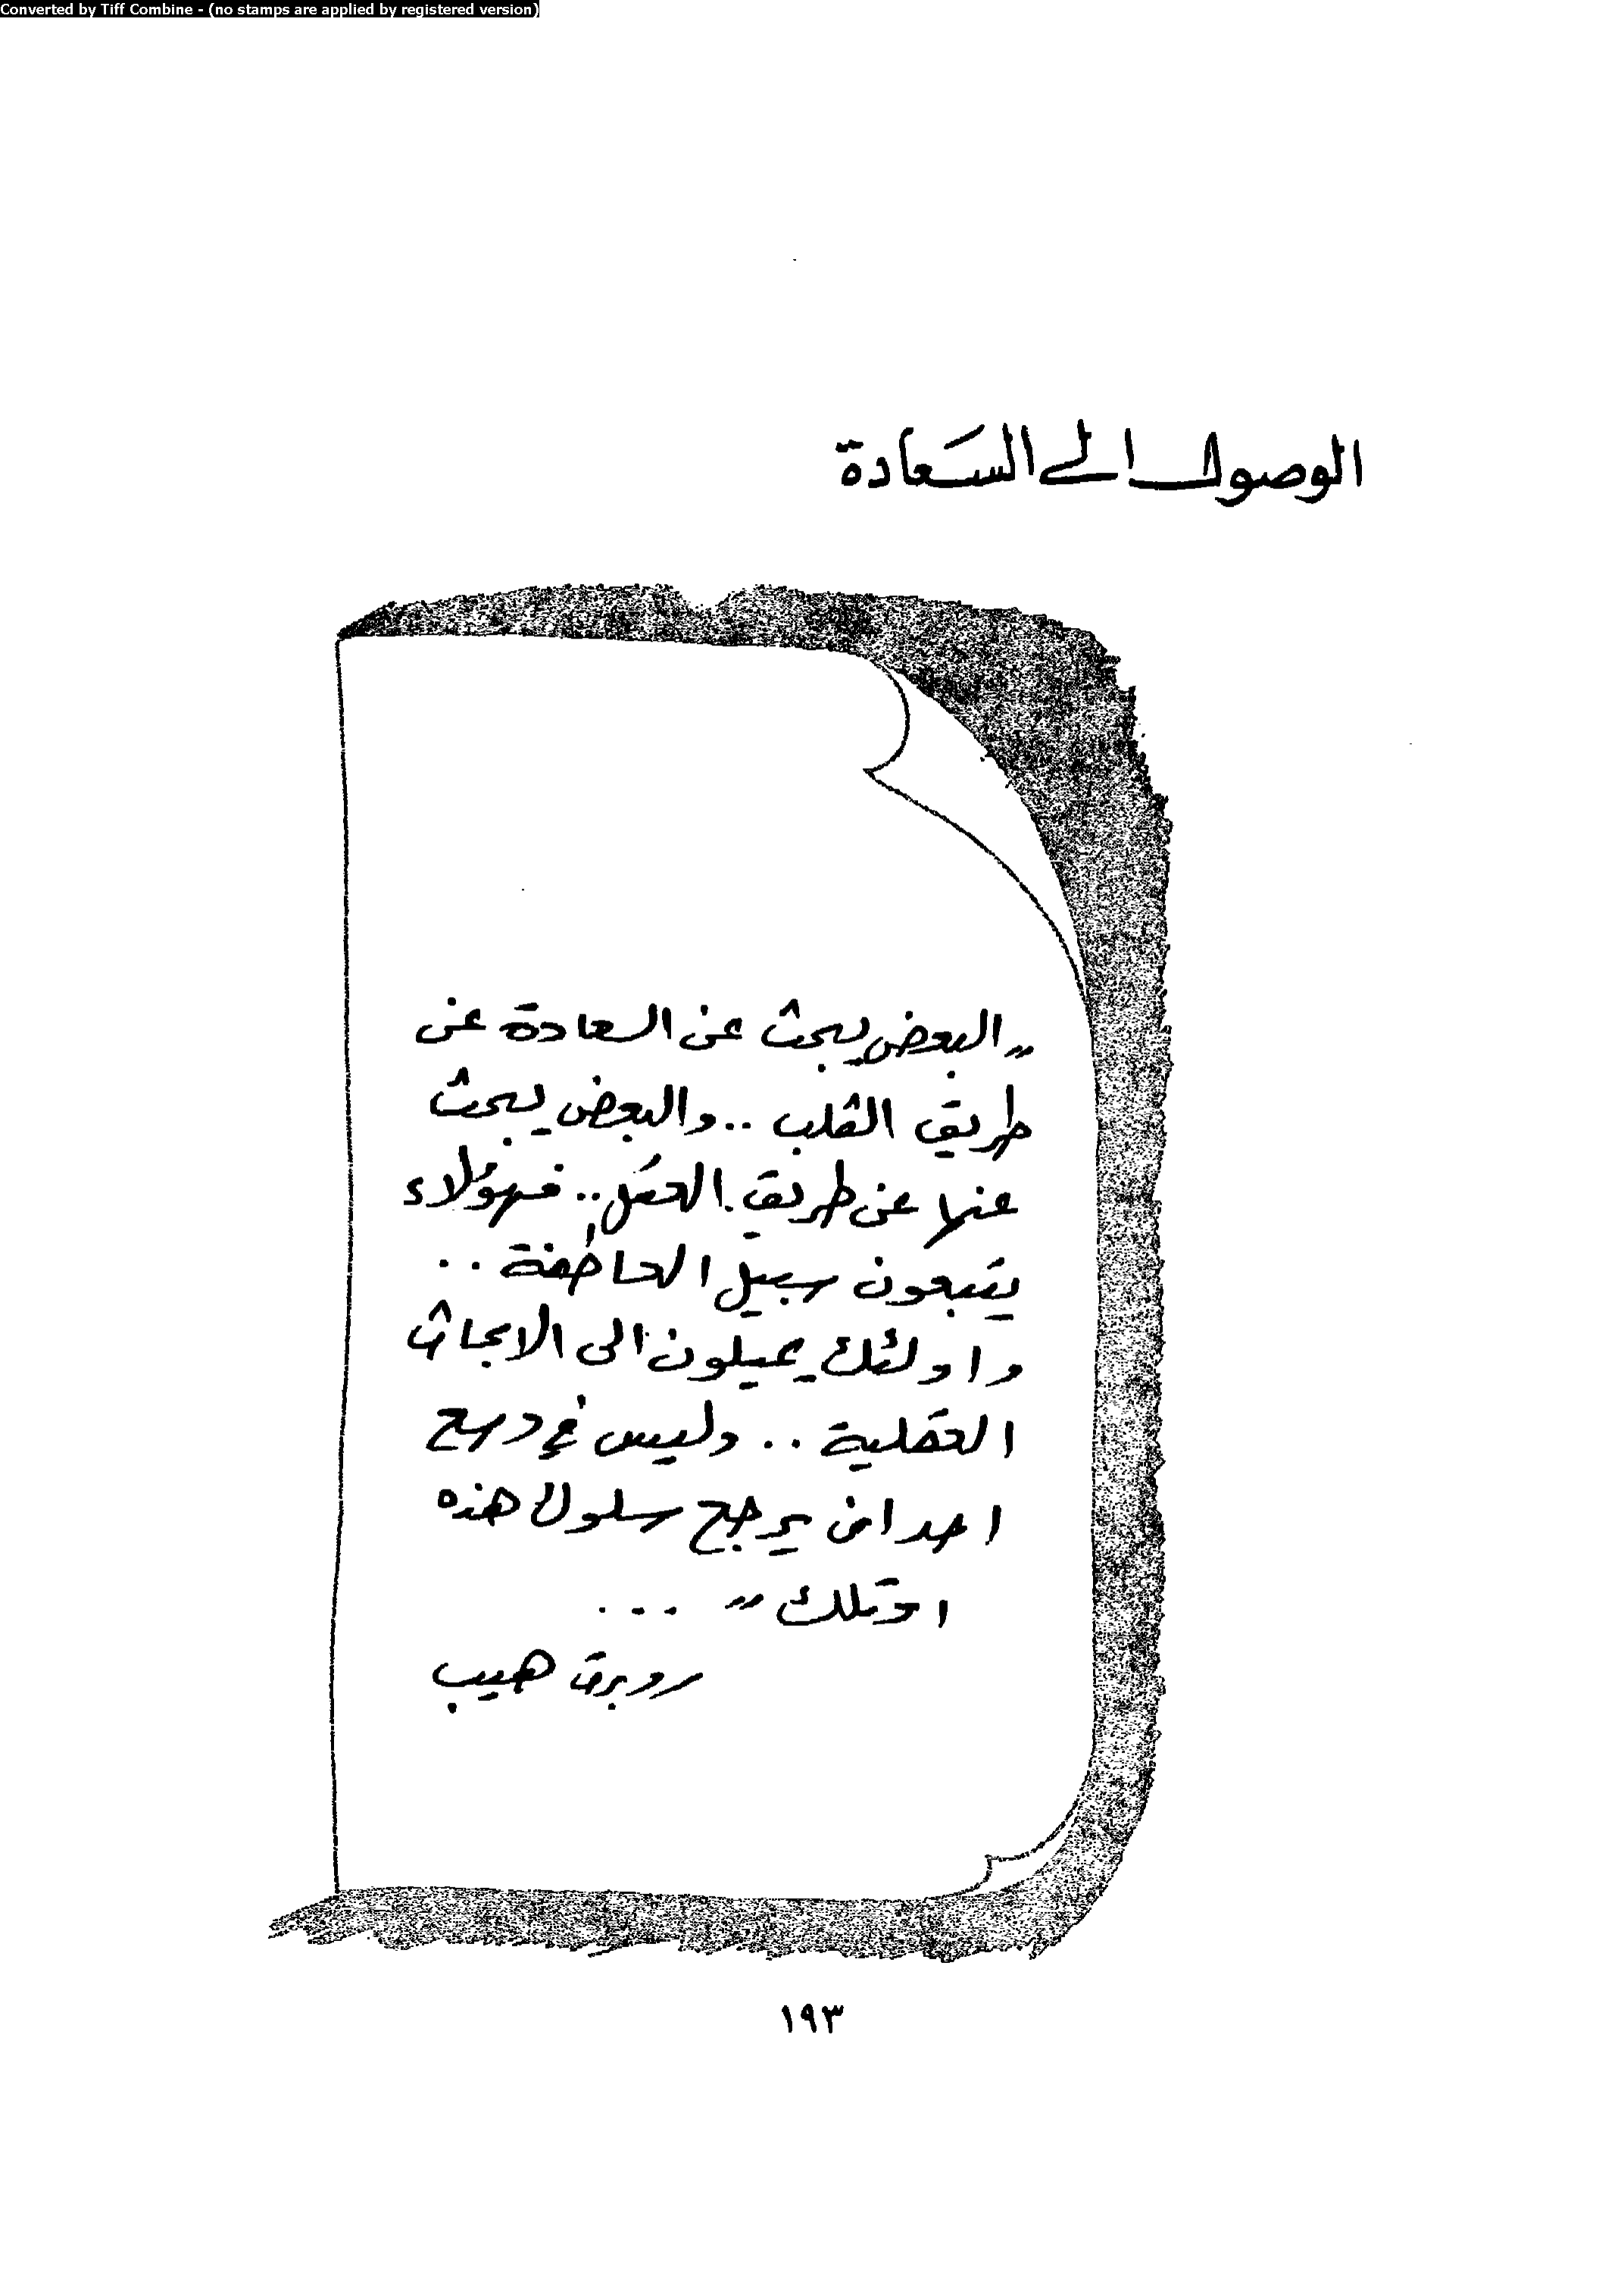 Converted by Tiff Combine - (no stamps are applied by registered version)
الوصول الى السعادة
"البعض يبحث عن السعادة عن
طريق القلب .. والبعض يبحث
عنها عن طريق العقل .. فهؤلاء
يتبعون سبيل العاطفة ..
واولئك يميلون الى الابحاث
العقلية .. وليس في وسع
احد ان يرجح سلوك هذه
او تلك" ...
روبرت هيب
١٩٣